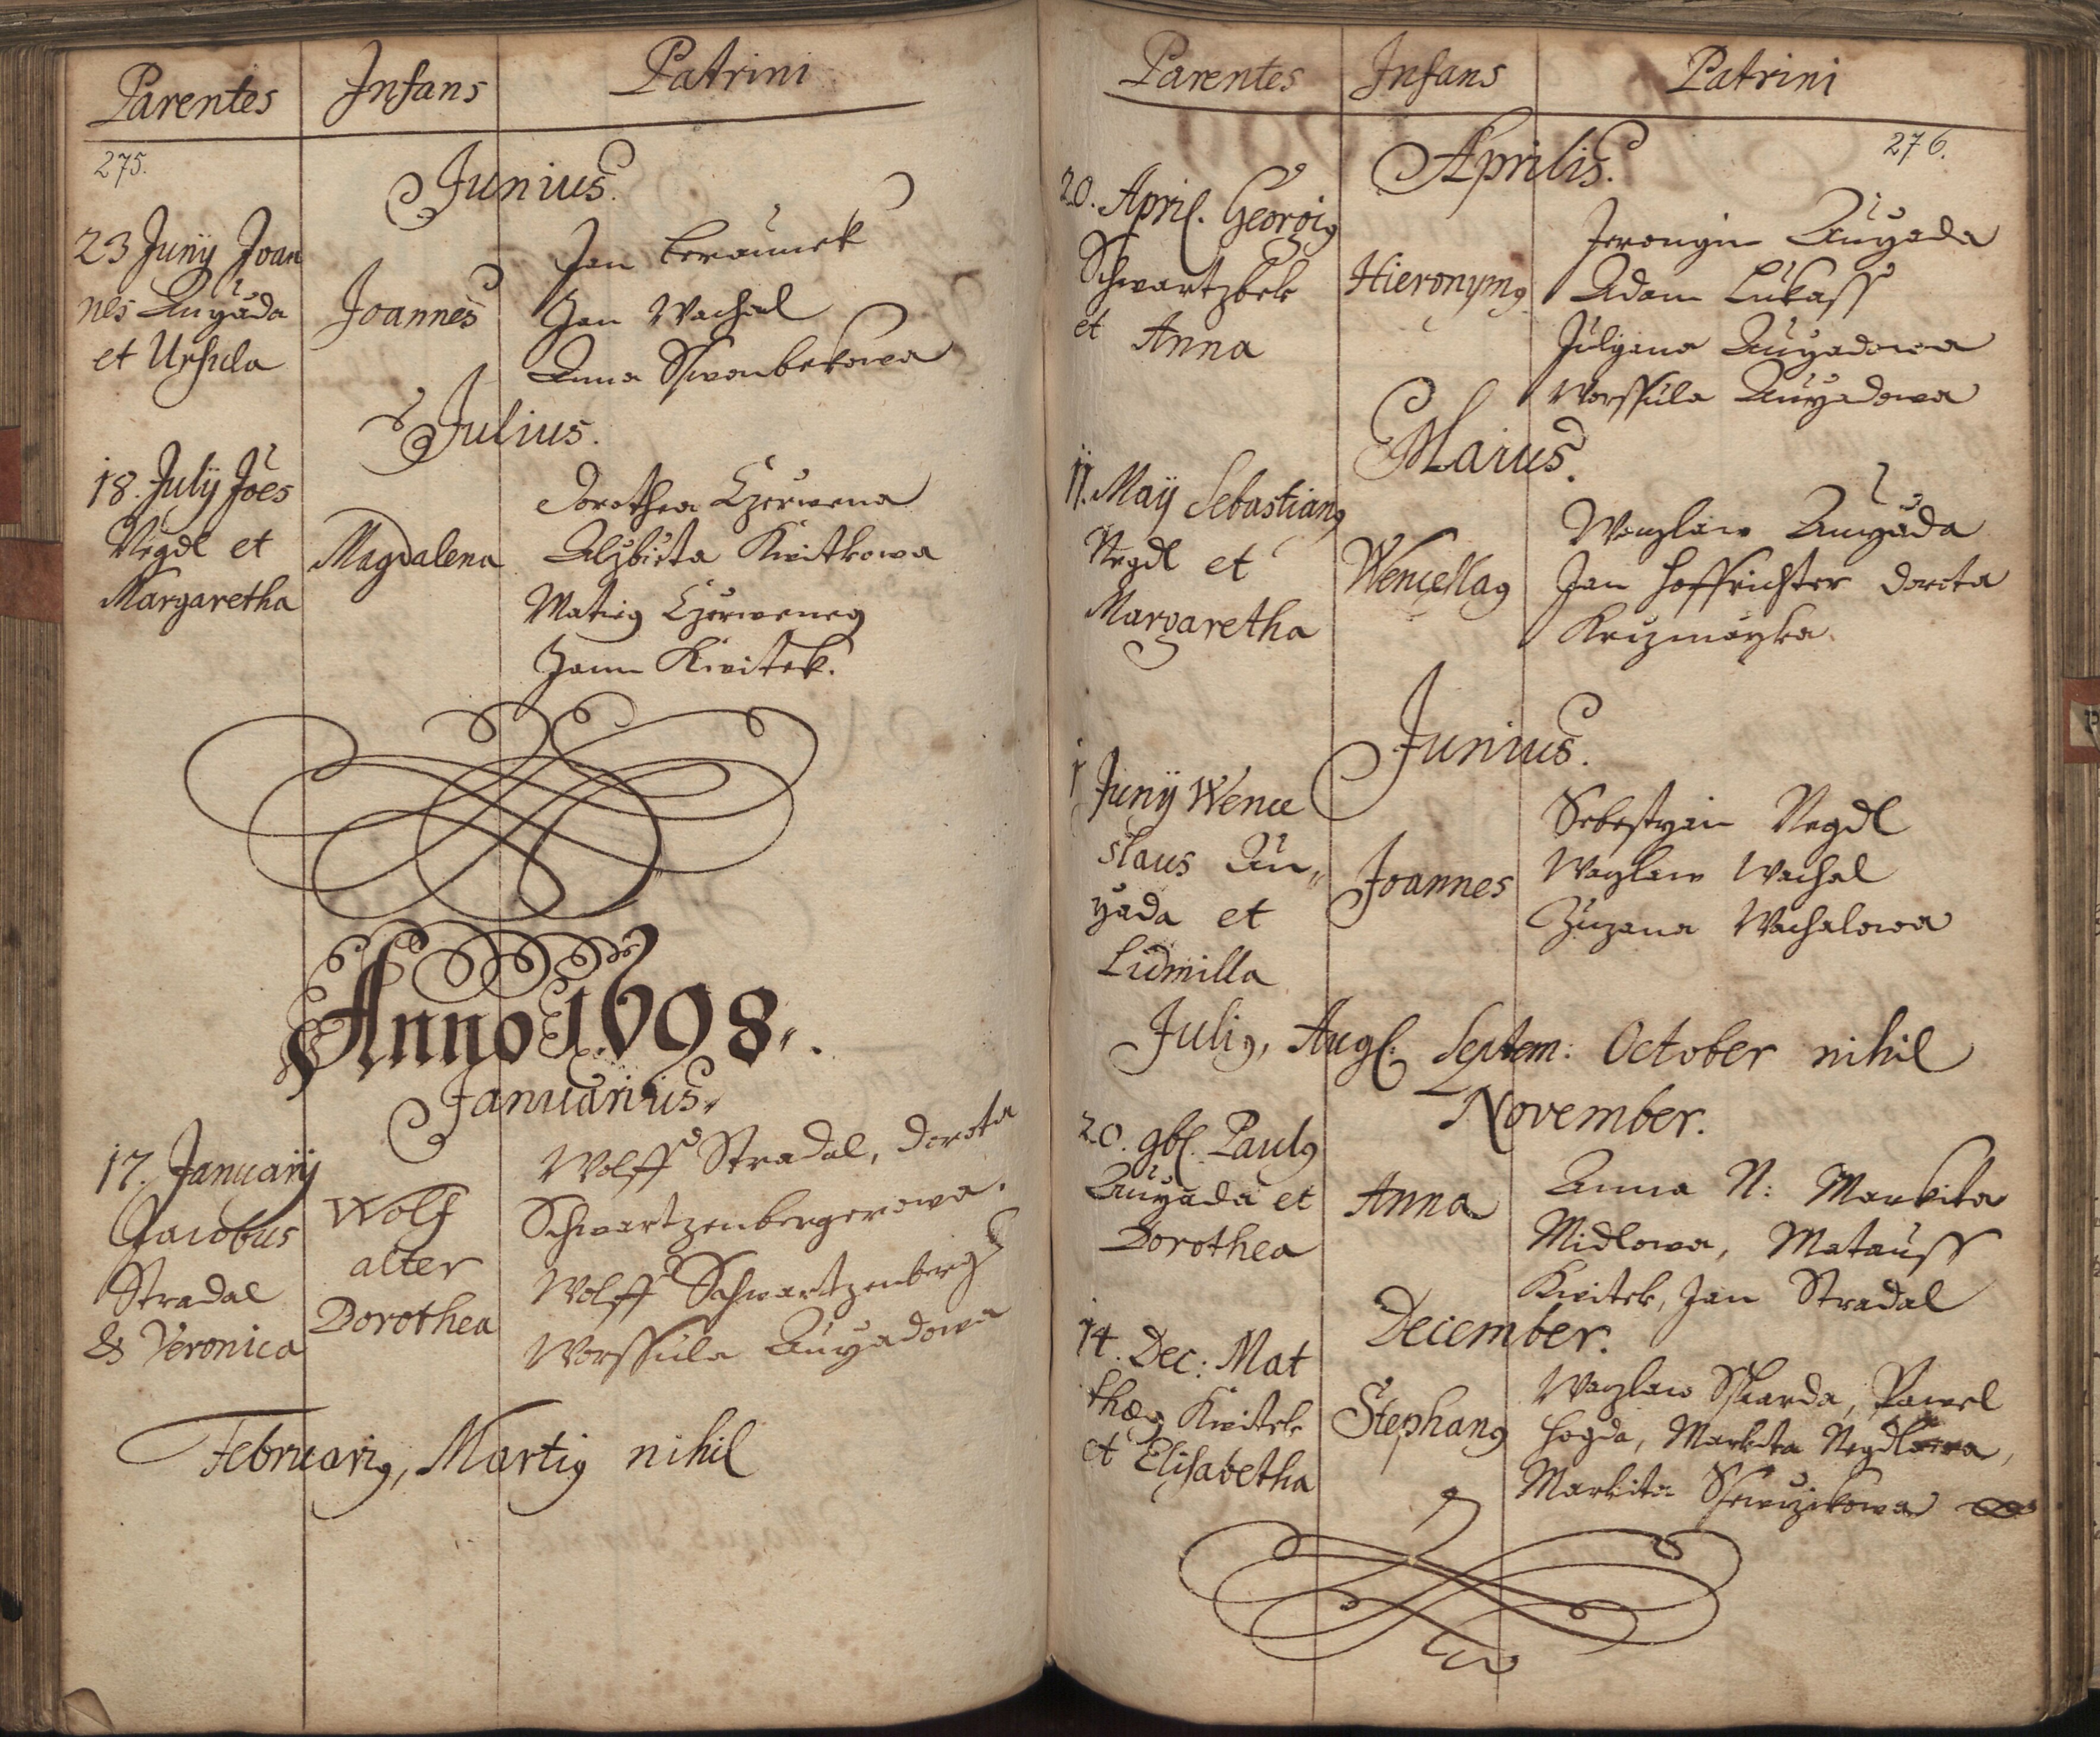 Parentes Infans Patrini
275.
Junius.
23 Junÿ Joan
nes Augada
et Ursula
Joannes
Jan
Jan Wachal
Anna
Julius.
18. Julÿ Joẽs
Negdl et
Margaretha
Magdalena
Dorothea Czerwena
Alzbieta Kwitkowa
Matieg Czerweneg
Jann Kwitek.
Anno 1698.
Januarius.
17. Januarÿ
Jacobus
Stradal
& Veronica
Wolf
alter
Dorothea
Wolff Stradal, Dorota
Schwartzenbergerowa.
Wolff Schwartzenberg
Worssula Augadowa
Februarig, Martig nihil
Parentes Infans Patrini
276.
Aprilis.
20. April. Georgig
Schwartzbek
et Anna
Hieronymg
Jeronym Augada
Adam Lukass
Julyana Augadowa
Worssula Augadowa
Maius.
11. Maÿ Sebastiang
Negdl et
Margaretha
Wenceslag
Wenzlaw Augada
Jan Hoffrichter Dorota
Junius.
1 Junÿ Wence
slaus Au„
gada et
Ludmilla
Joannes
Sebestyan Negdl
Waczlaw Wachal
Zuzana Wachalowa
Julig, Augl: Septem: October nihil
November.
20. 9bl. Paulg
Augada et
Dorothea
Anna
Anna N: Markita
Midlowa, Matauss
Kwitek, Jan Stradal
December.
14. Dec: Mat
thæg Kwitek
et Elisabetha
Stephang
Waczlaw Skarda, Pawel
Hogda, Markita Negdlowa,
Markita